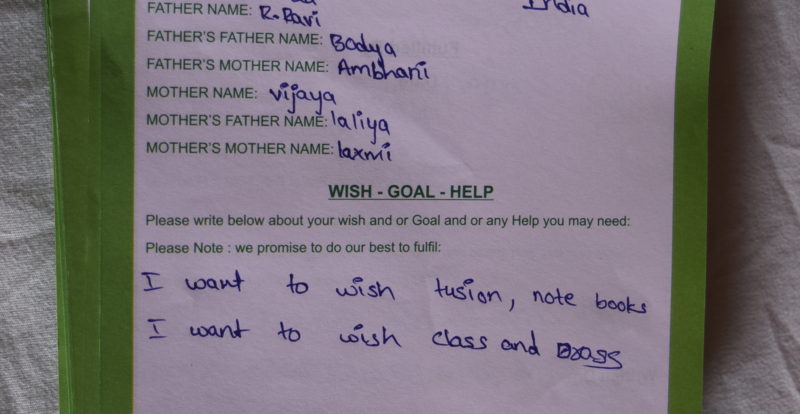 FATHER NAME: R.Ravi
India
FATHER'S FATHER NAME: Bodya
FATHER'S MOTHER NAME: Ambhani
MOTHER NAME: vijaya
MOTHER'S FATHER NAME: laliya
MOTHER'S MOTHER NAME: laxmi
WISH - GOAL - HELP
Please write below about your wish and or Goal and or any Help you may need:
Please Note : we promise to do our best to fulfil:
I want to wish tusion, note books
I want to wish class and